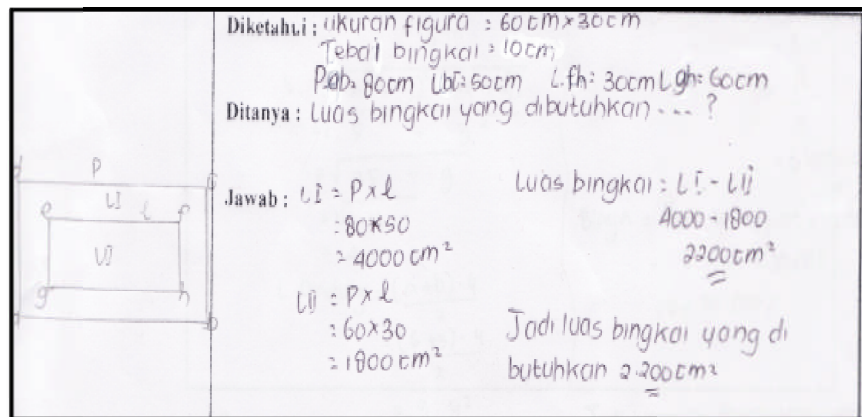 Diketahui : ukuran figura : 60 cm x 30 cm
Tebal bingkai = 10 cm
P.ab = 80cm L.bc = 50cm L.fh = 30cm L gh = 60cm
Ditanya : Luas bingkai yang dibutuhkan .... ?
Jawab : LI = P x l
= 80 x 50
= 4000 cm²
LII = P x l
= 60 x 30
= 1800 cm²
Luas bingkai : LI - LII
4000 - 1800
2200 cm²
Jadi luas bingkai yang di
butuhkan 2.200 cm²
d P c
LI
e l f
LII
g h
b